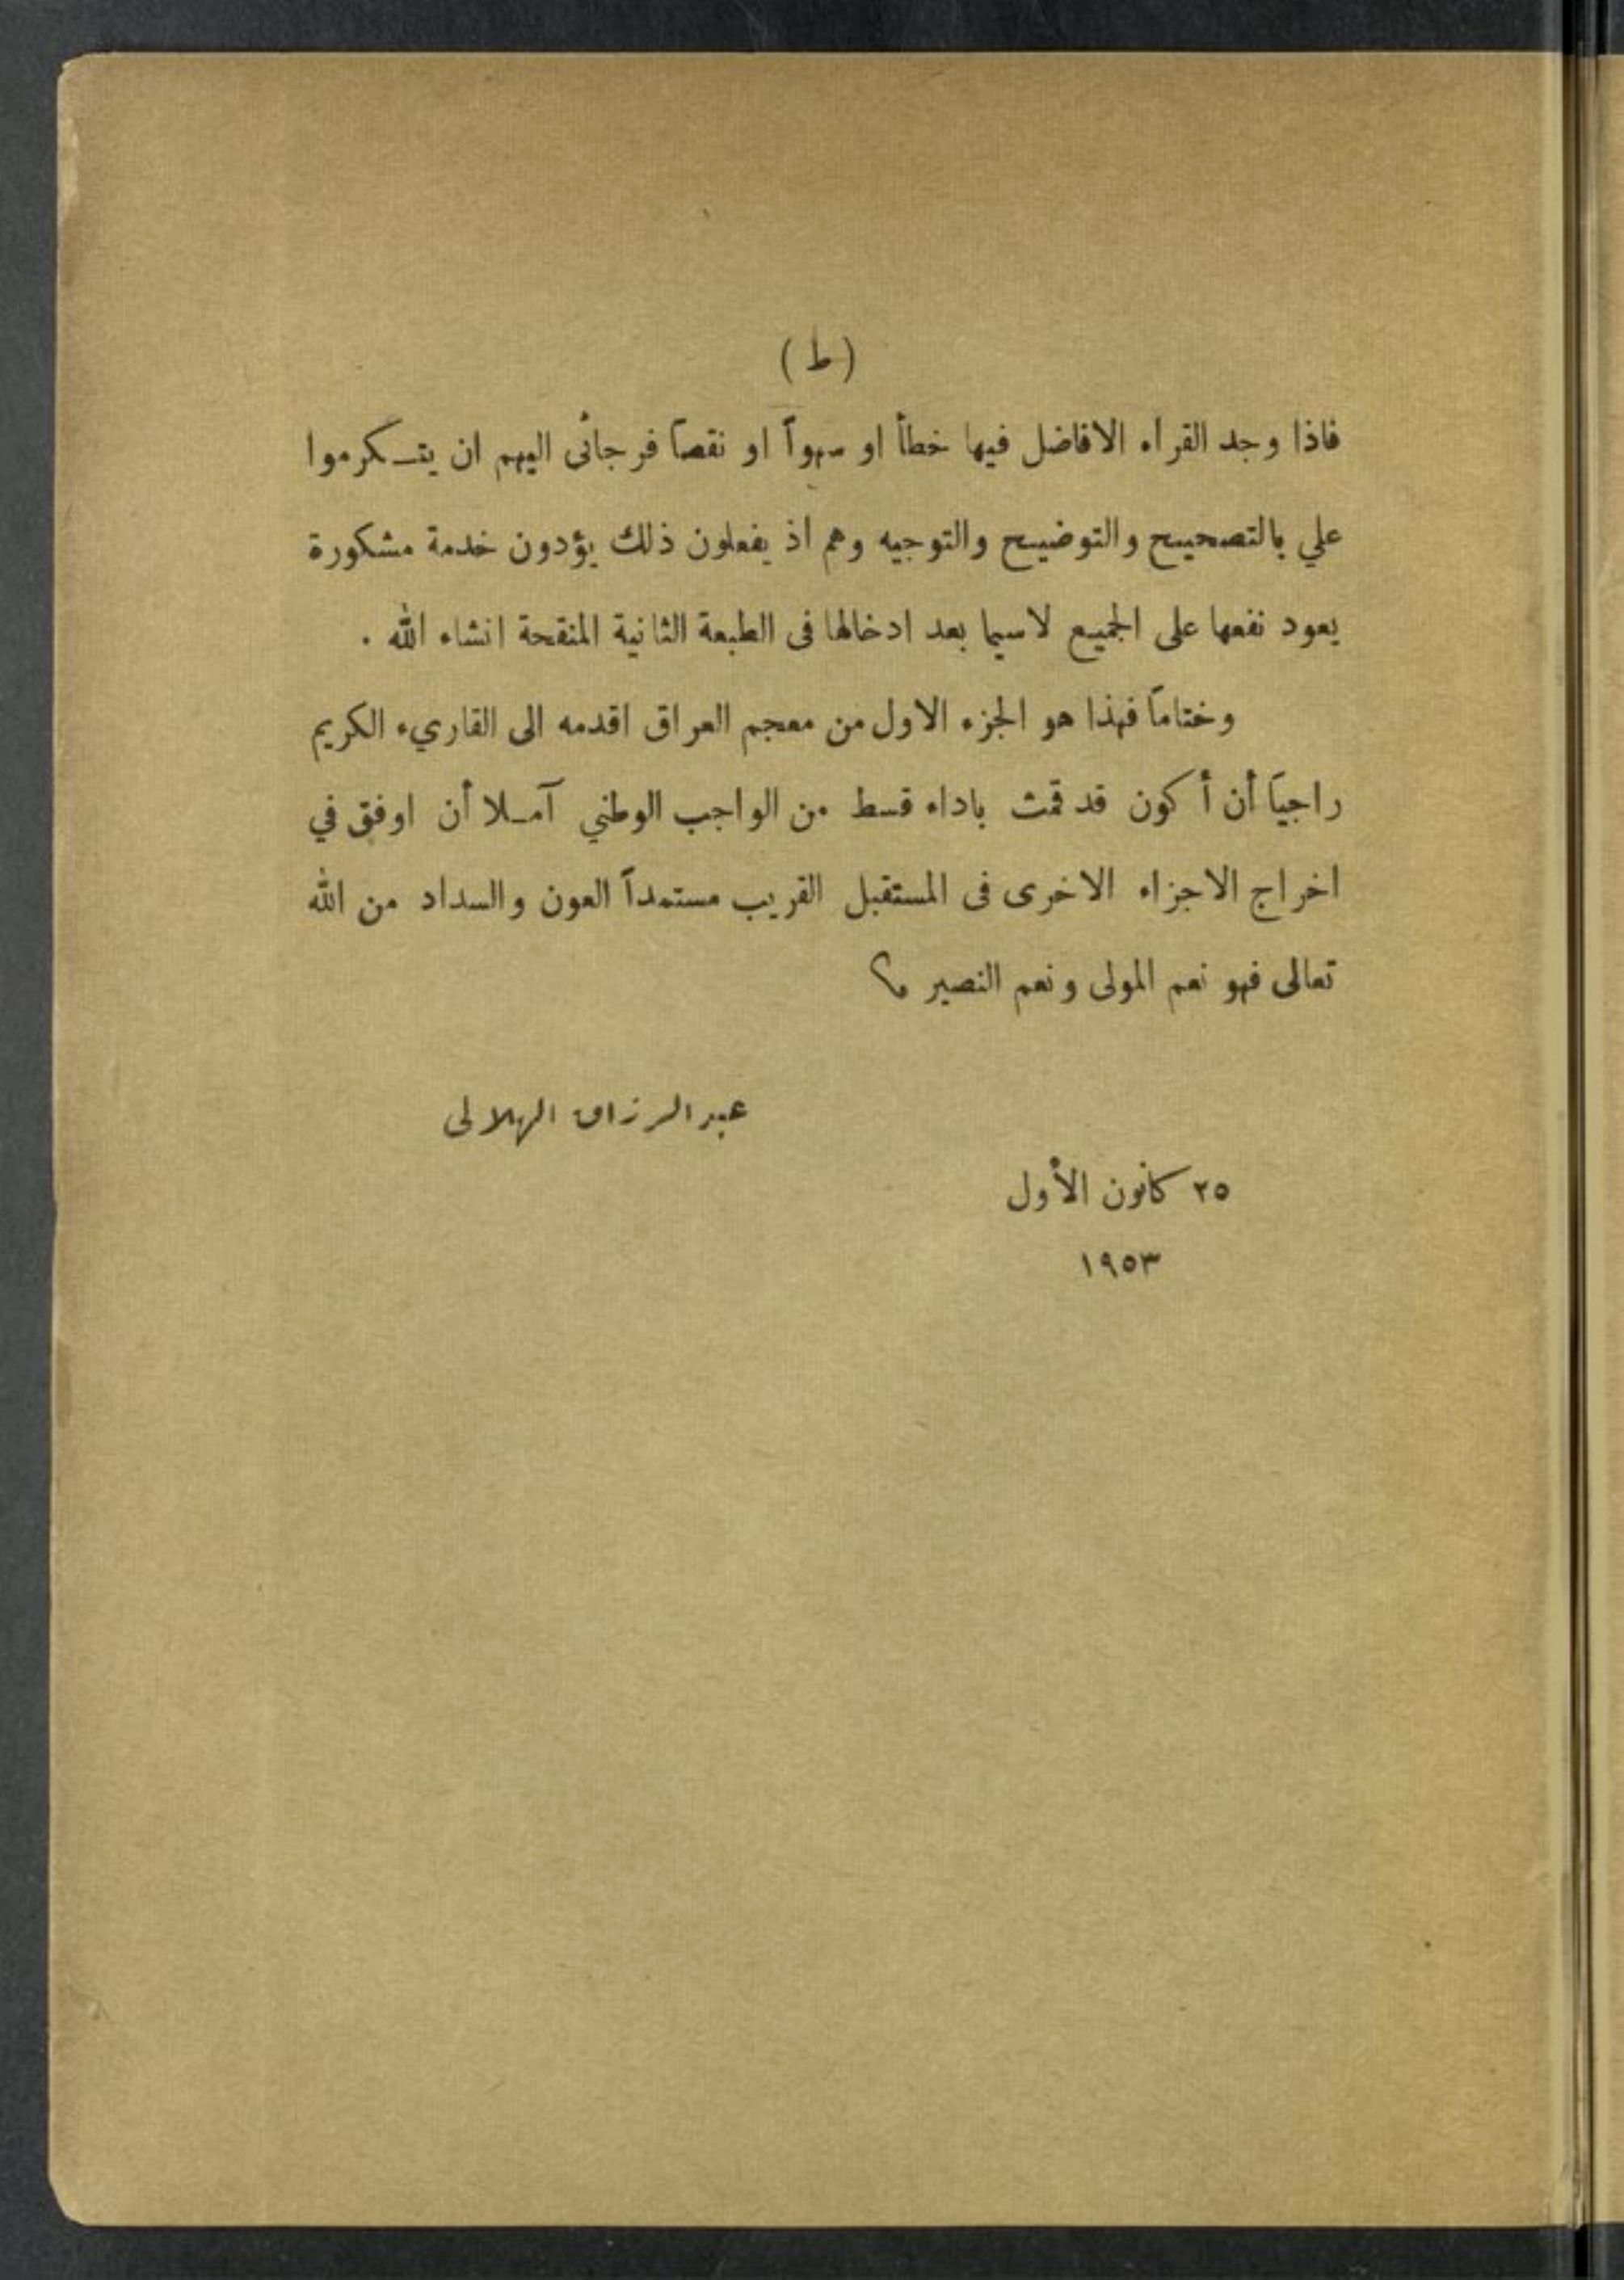 (ط)
فاذا وجد القراء الافاضل فيها خطأ او سهواً او نقصاً فرجائى اليهم ان يتـكرموا
علي بالتصحيح والتوضيح والتوجيه وهم اذ يفعلون ذلك يؤدون خدمة مشكورة
يعود نفعها على الجميع لاسيما بعد ادخالها فى الطبعة الثانية المنقحة انشاء الله .
وختاماً فهذا هو الجزء الاول من معجم العراق اقدمه الى القاريء الكريم
راجياً أن أكون قد قمت باداء قسط من الواجب الوطني آمـلا أن اوفق في
اخراج الاجزاء الاخرى فى المستقبل القريب مستمداً العون والسداد من الله
تعالى فهو نعم المولى ونعم النصير
عبد الرزاق الهلالى
٢٥ كانون الأول
١٩٥٣